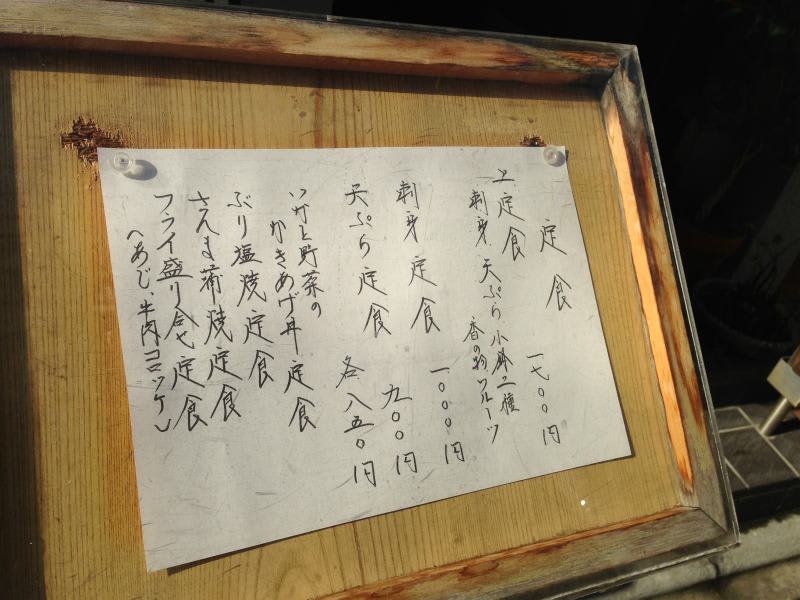 定食
上定食 一七〇〇円
刺身 天ぷら 小鉢二種
香の物 フルーツ
刺身定食 一〇〇〇円
天ぷら定食 九〇〇円
各八五〇円
いかと野菜の
かきあげ丼定食
ぶり塩焼定食
さんま蒲焼定食
フライ盛り合せ定食
(あじ・牛肉コロッケ)